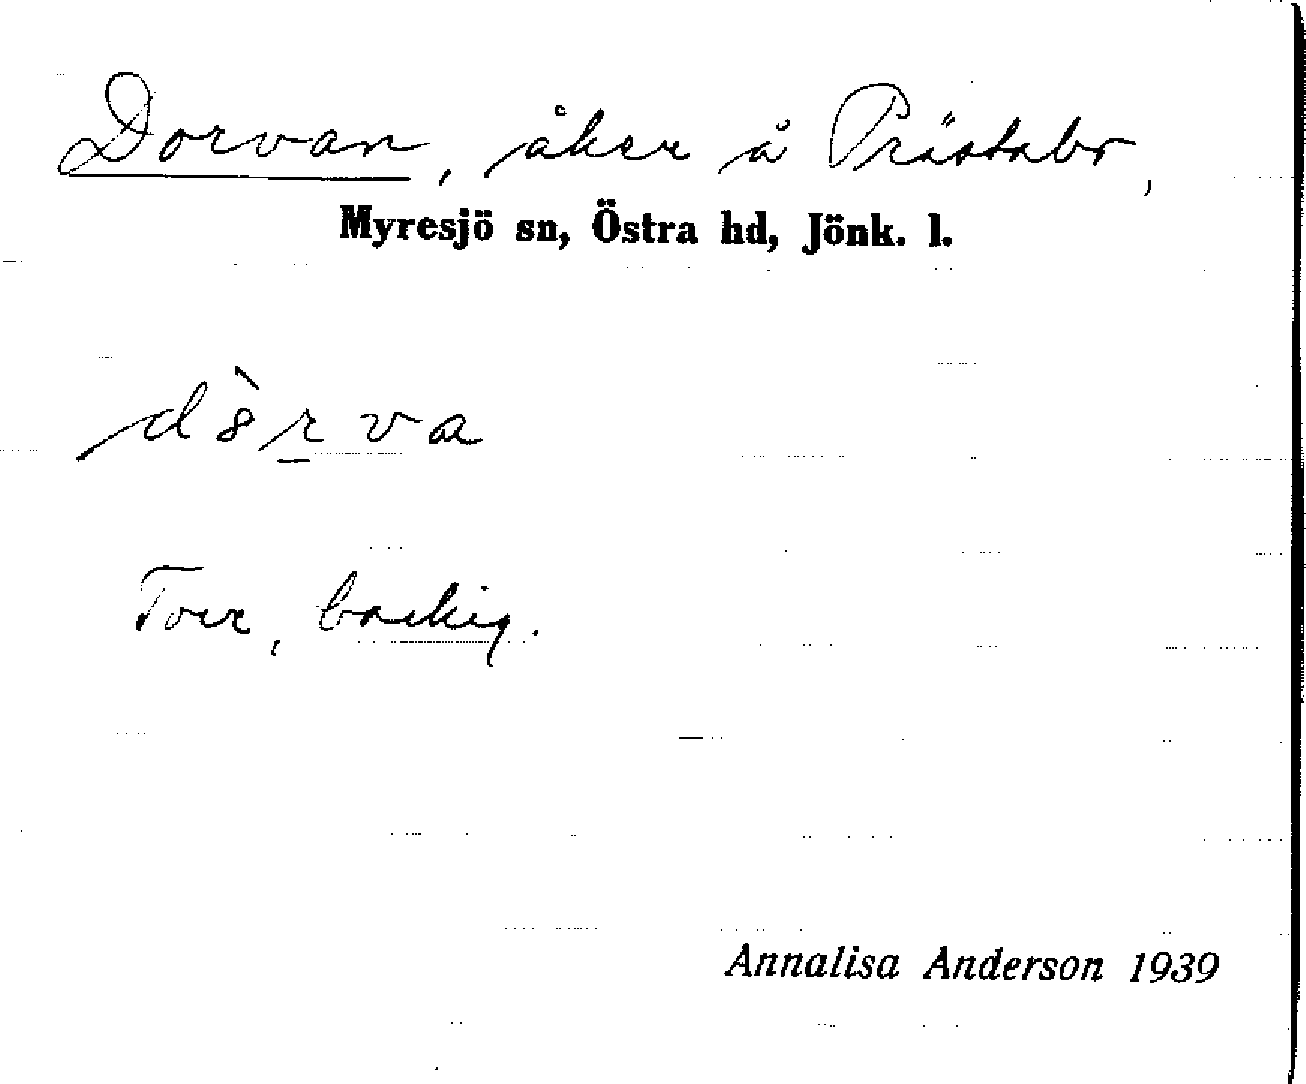 Dorvan, åker å Prästabo,
Myresjö sn, Östra hd, Jönk. l.
Torr, backig.
Annalisa Anderson 1939